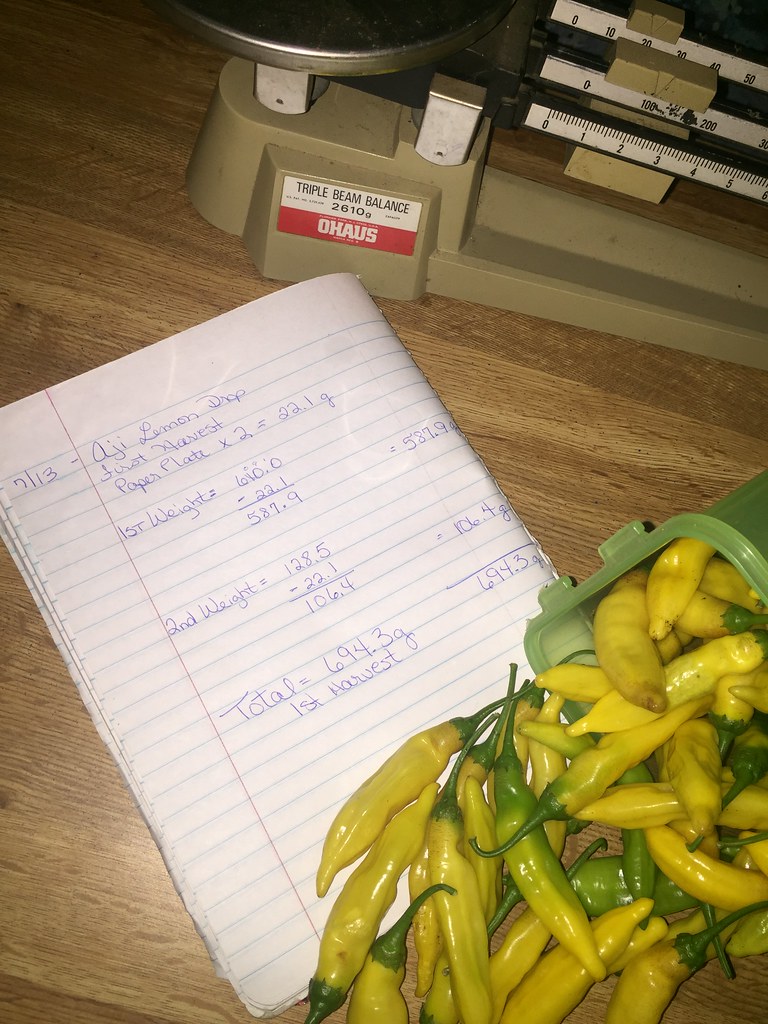 0 10 20 30 40 50
0 100 200 30
0 1 2 3 4 5 6
TRIPLE BEAM BALANCE
2610g
OHAUS
7/13 - Aji Lemon Drop
First Harvest
Paper Plate x 2 = 22.1 g
1st Weight = 610.0
- 22.1
587.9
= 587.9 g
2nd Weight = 128.5
- 22.1
106.4
= 106.4 g
694.3g
Total = 694.3g
1st Harvest